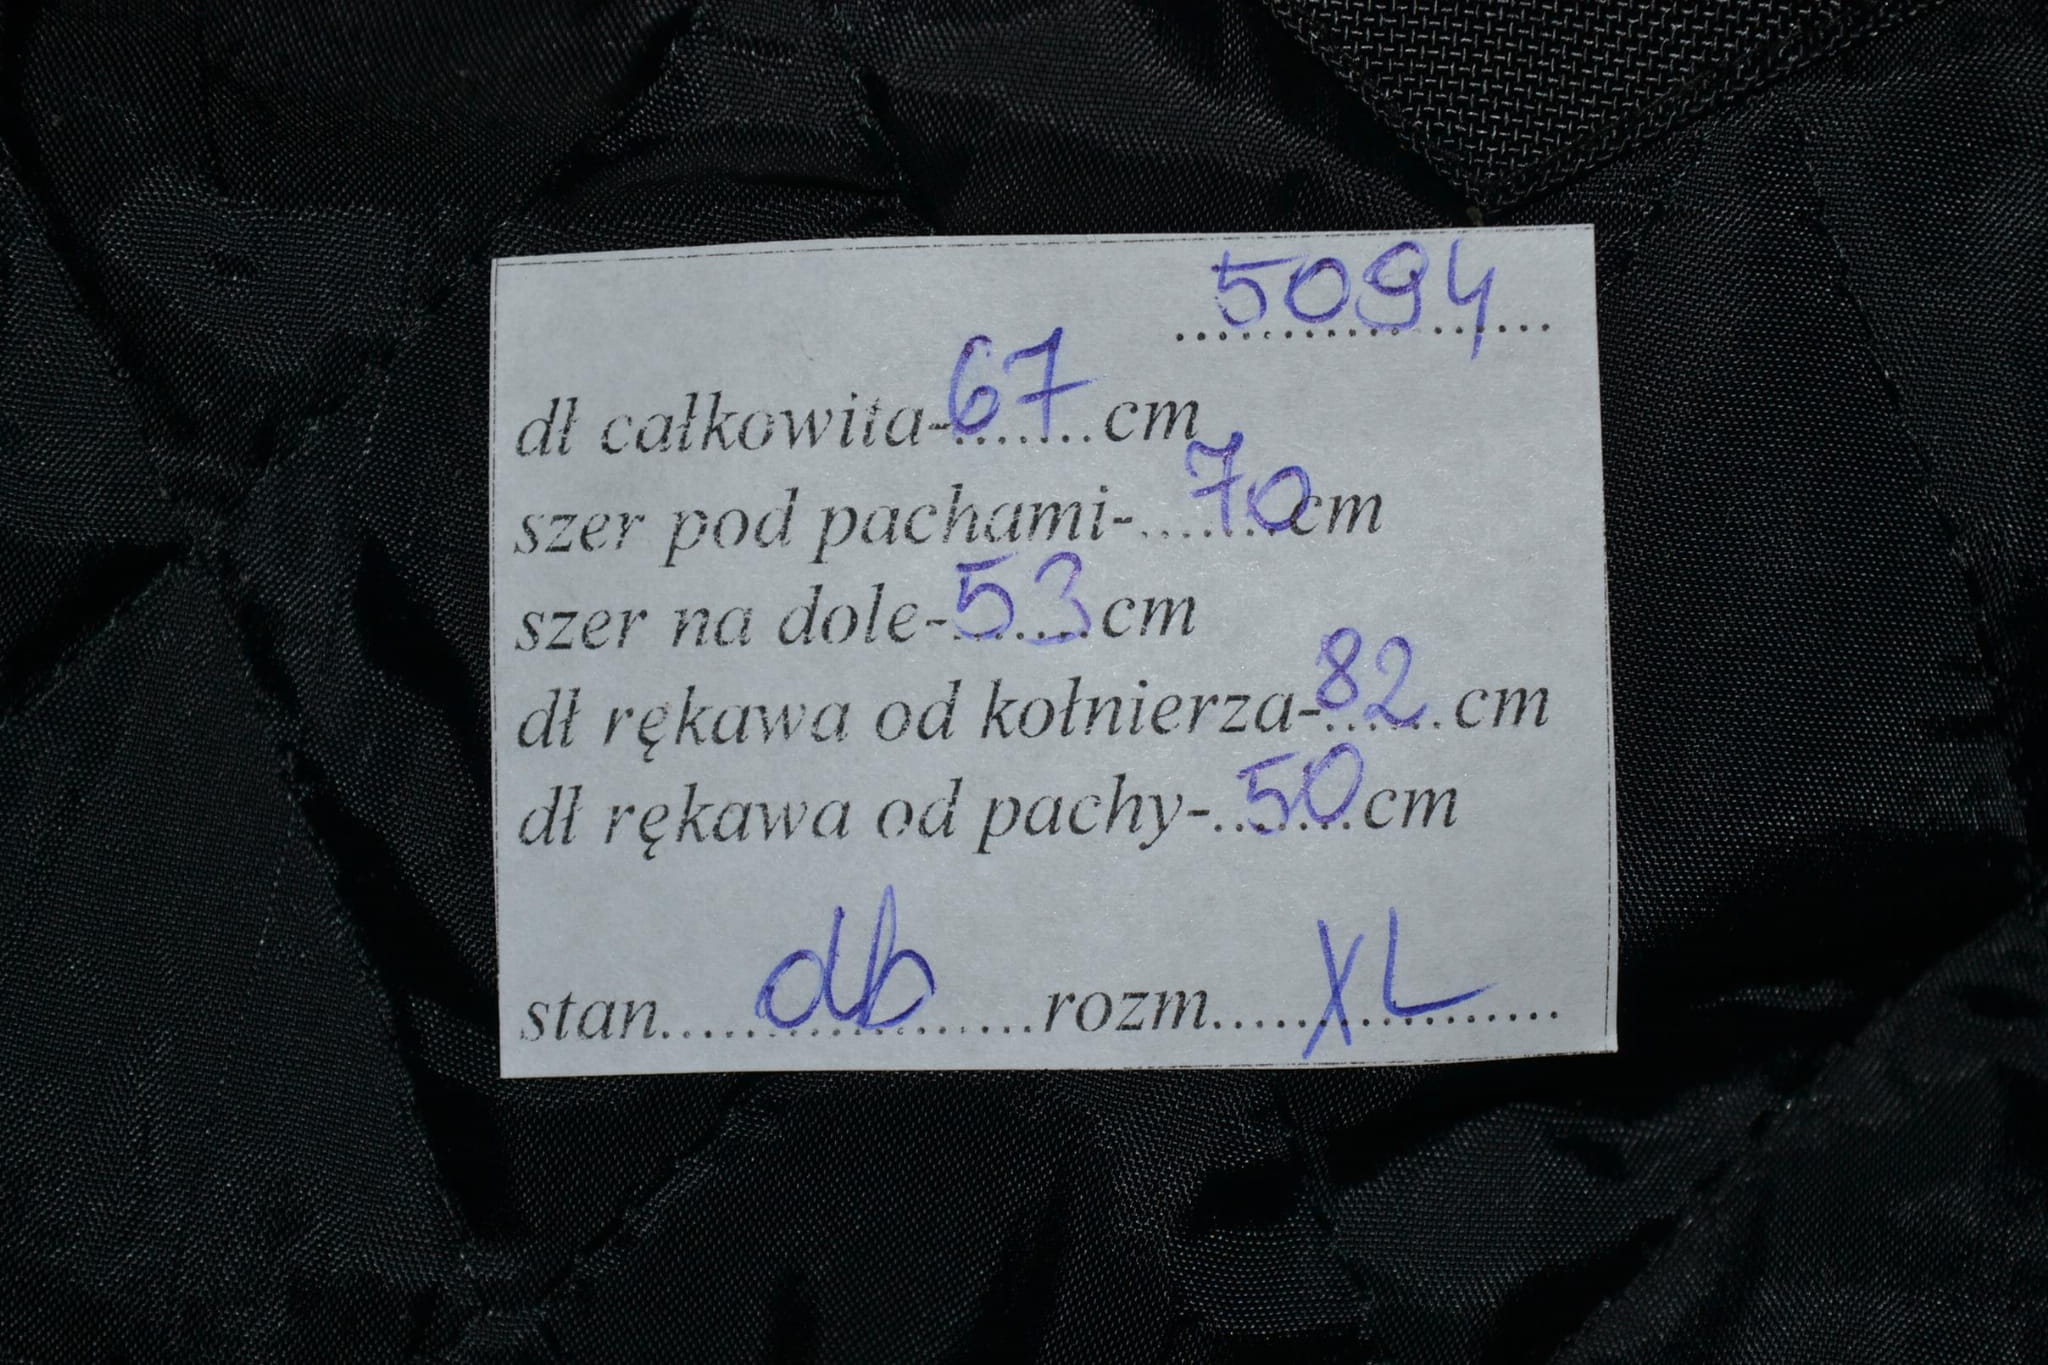 5094
dł całkowita-67.......cm
szer pod pachami-.......70cm
szer na dole-53.......cm
dł rękawa od kołnierza-82......cm
dł rękawa od pachy-.......50cm
stan.....db..................rozm.....XL.................